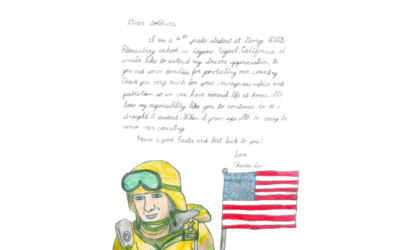 Dear Soldiers,
I am a 4th grade student at George White
Elementary school in Laguna Niguel, California. I
would like to extend my sincere appreciation to
you and your families for protecting our country.
Thank you very much for your courageous sacrifice and
patriotism so we can have normal life at home. I'll
take my responsibility like you to continue to be a
straight A student. When I grow up I'll be ready to
serve our country.
Have a good Easter and best luck to you!
Love,